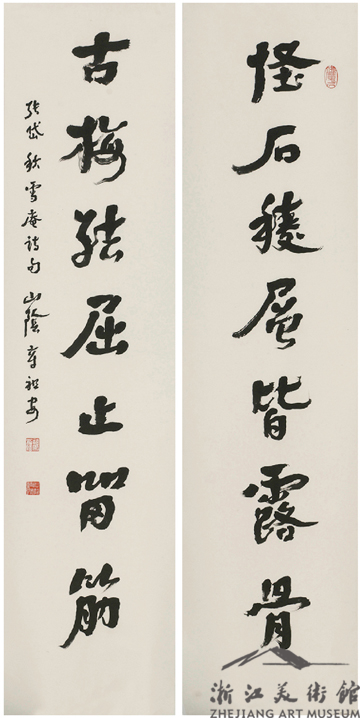 怪石稜層皆露骨
古梅結屈止留筋
張岱秋雪庵詩句 山陰章祖安
浙江美術館
ZHEJIANG ART MUSEUM